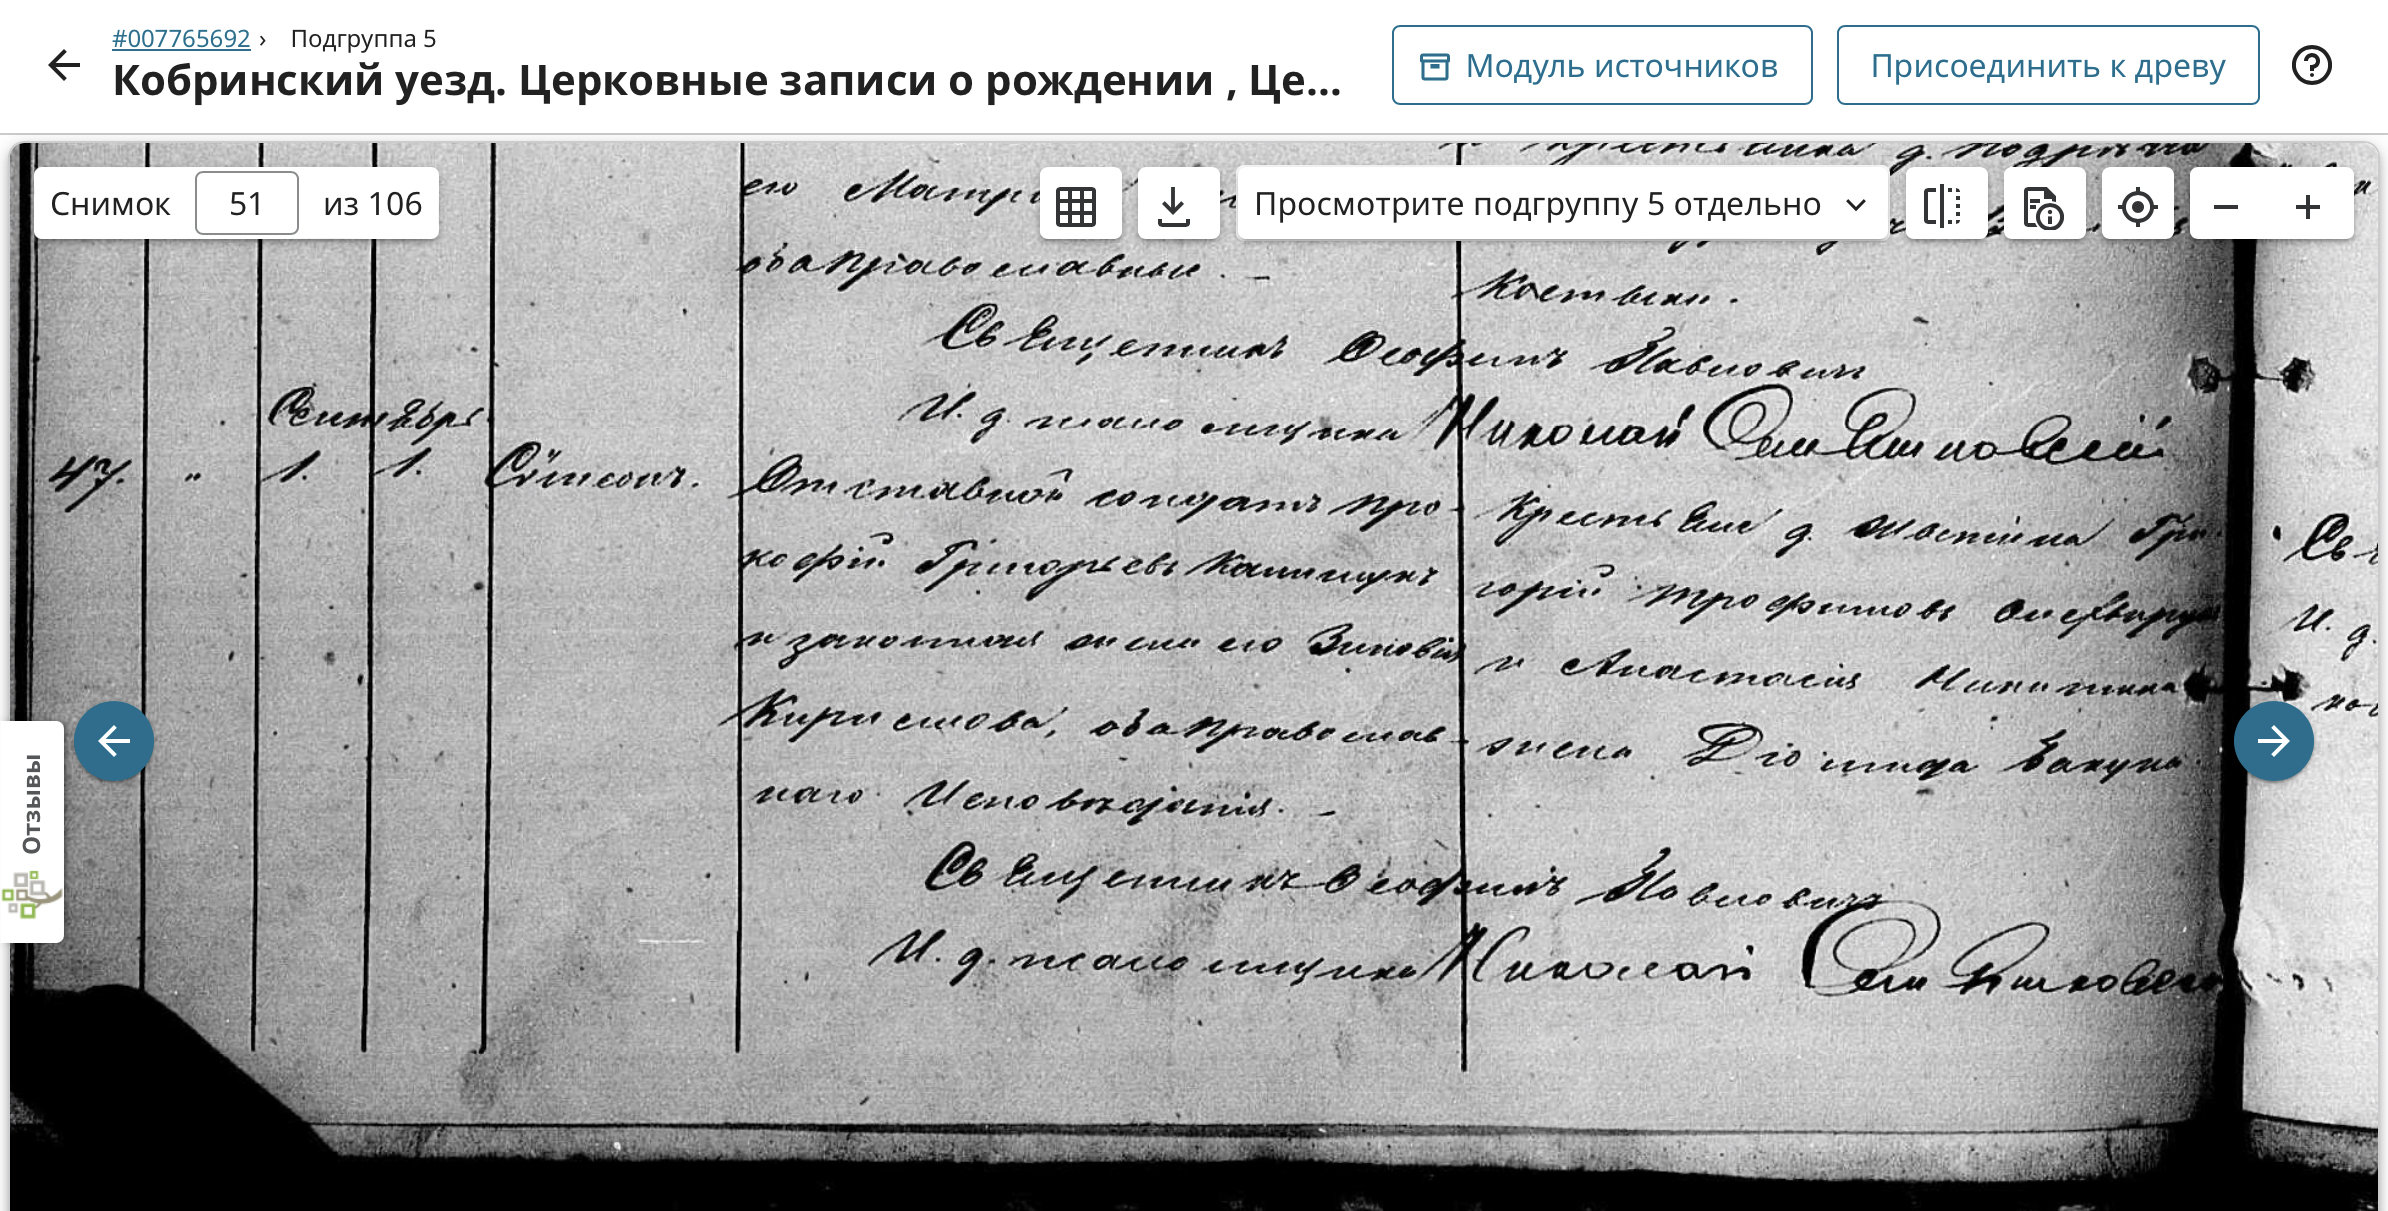 #007765692 › Подгруппа 5
Кобринский уезд. Церковные записи о рождении , Це...
Модуль источников
Присоединить к древу
Снимок 51 из 106
Просмотрите подгруппу 5 отдельно
Отзывы
его
оба православные. -
Костюки.
Священникъ Ѳеофилъ Павловичъ
И. д. псаломщика Николай
Сентябрь
47. " 1. 1. Сѵмеонъ.
Отставной солдатъ Про-
кофій Григорьевъ Калищукъ
и законная жена его Зиновія
Кирилова, оба православ-
наго Исповѣданія. -
Крестьяне д. Гри-
горій Трофимовъ
и Анастасія Никитина
жена Діомида
Священникъ Ѳеофилъ Павловичъ
И. д. псаломщика Николай
Св
И. д.